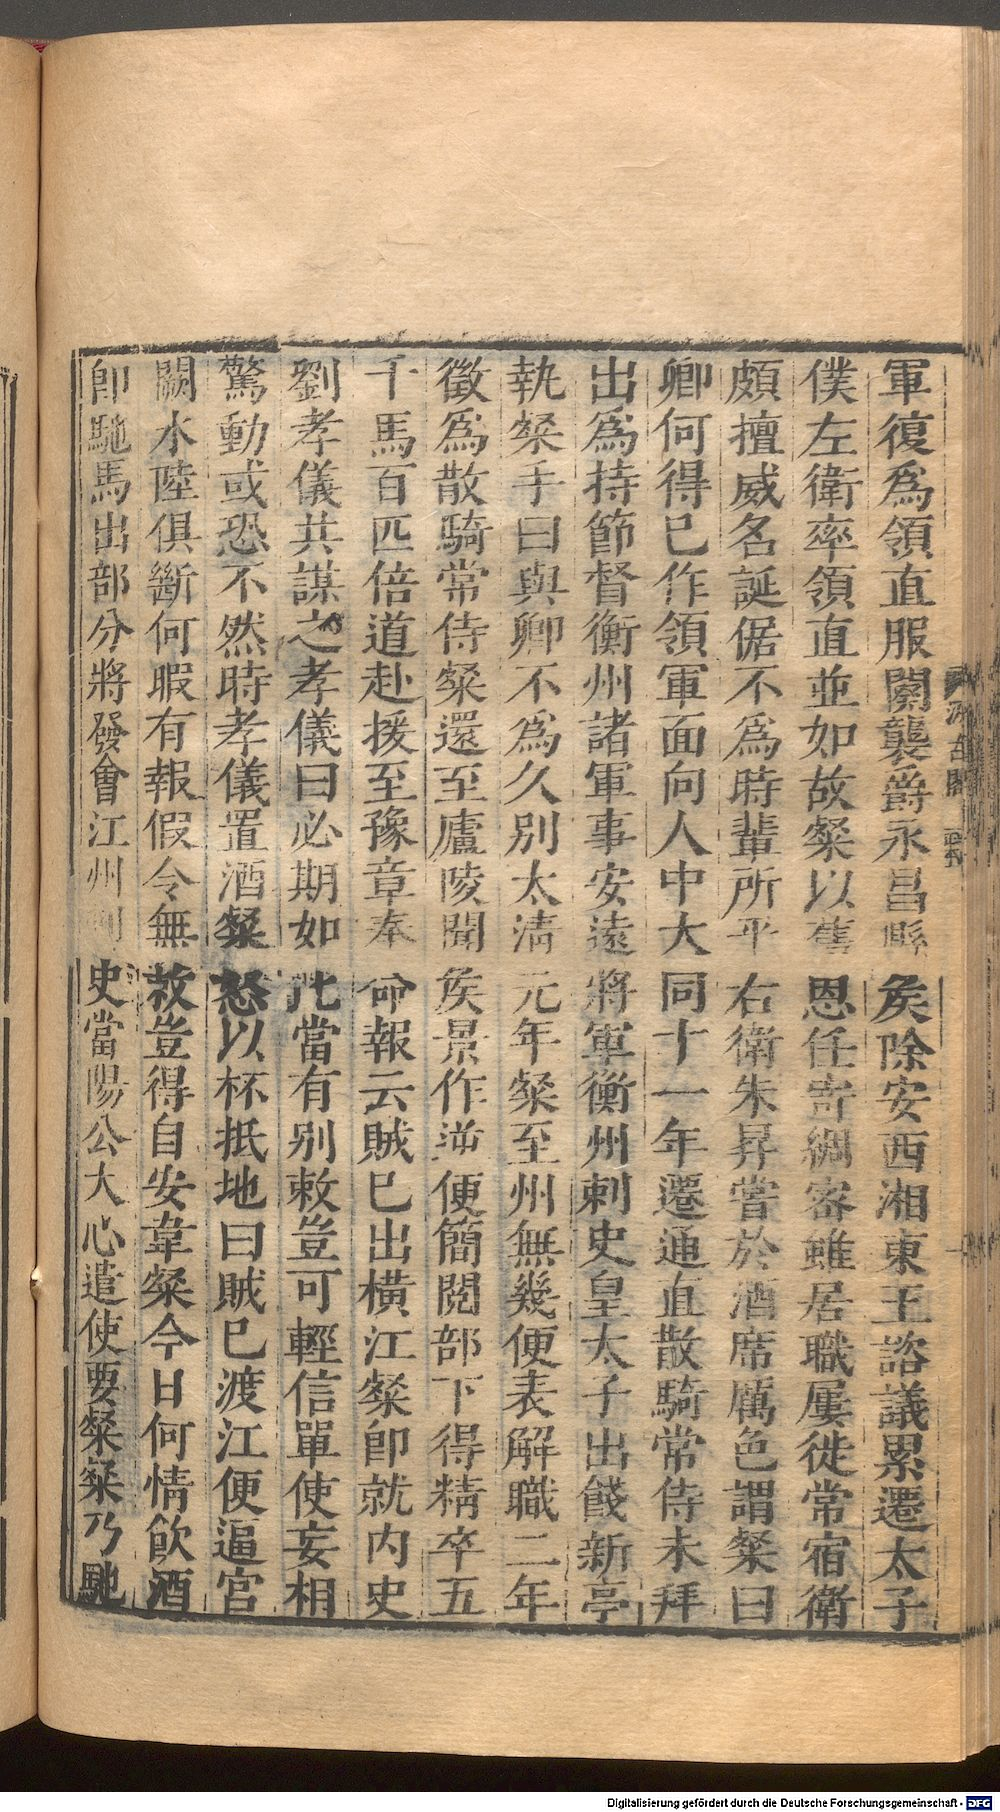 軍復爲領直服闋襲爵永昌縣矦除安西湘東王諮議累遷太子
僕左衛率領直並如故粲以舊恩任寄綢密雖居職屢徙常宿衛
頗擅威名誕倨不爲時輩所平右衛朱昇嘗於酒席厲色謂粲曰
卿何得已作領軍面向人中大同十一年遷通直散騎常侍未拜
出爲持節督衡州諸軍事安遠將軍衡州刺史皇太子出餞新亭
執粲手曰與卿不爲久別太清元年粲至州無幾便表解職二年
徵爲散騎常侍粲還至廬陵聞矦景作逆便簡閱部下得精卒五
千馬百匹倍道赴援至豫章奉命報云賊已出橫江粲卽就內史
劉孝儀共謀之孝儀曰必期如此當有别敕豈可輕信單使妄相
驚動或恐不然時孝儀置酒粲怒以杯抵地曰賊已渡江便逼宮
闕水陸俱斷何暇有報假令無敕豈得自安韋粲今日何情飮酒
卽馳馬出部分將發會江州刺史當陽公大心遣使要粲粲乃馳
汲古閣
Digitalisierung gefördert durch die Deutsche Forschungsgemeinschaft - DFG